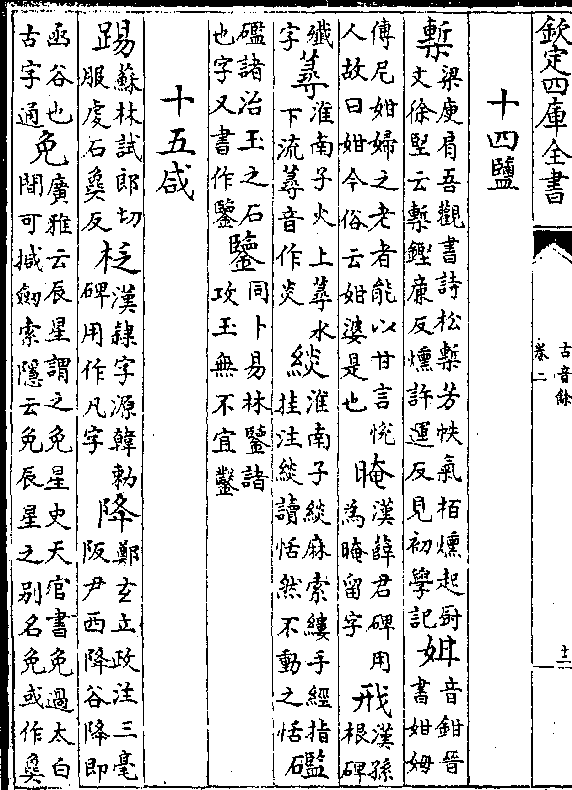 欽定四庫全書
古音餘
卷二
十二
十四鹽
槧梁庾肩吾觀書詩松槧芳帙氣栢燻起厨
文徐堅云槧鏗廉反燻許運反見初學記姏音鉗晉
書姏姆
傅尼姏婦之老者能以甘言悦
人故曰姏今俗云姏婆是也晻漢薛君碑用
為晻留字漢孫
根碑
纎
字蕁淮南子火上蕁水
下流蕁音作炎緂淮南子緂麻索縷手經指
挂注緂讀恬然不動之恬礛
礛諸治玉之石
也字又書作鑒鑒同卜易林鑒諸
攻玉無不宜鑿
十五咸
踼蘇林試郎切
服虔石奠反柉漢隸字源韓勅
碑用作凡字降鄭玄立政注三亳
阪尹西降谷降即
函谷也
古字通免廣雅云辰星謂之免星史天官書免過太白
閒可椷劒索隱云免辰星之别名免或作毚